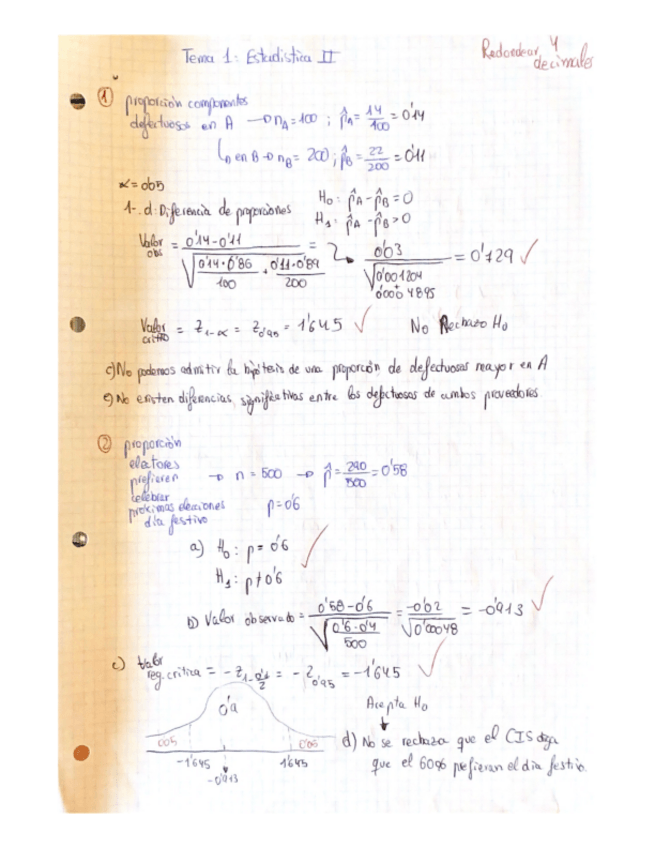 Tema 1: Estadística II
Redondear 4 decimales
① proporción componentes
defectuosos en A → nA = 100 ; p̂A = 14/100 = 0'14
↳ en B → nB = 200 ; p̂B = 22/200 = 0'11
α = 0'05
1-. d: Diferencia de proporciones
H₀: p̂A - p̂B = 0
H₁: p̂A - p̂B > 0
Valor obs = (0'14 - 0'11) / √(0'14·0'86/100 + 0'11·0'89/200) = 0'03 / √(0'001204 + 0'0004895) = 0'729 ✓
Valor crítico = Z₁₋α = Z₀'₉₅ = 1'645 ✓ No Rechazo H₀
c) No podemos admitir la hipótesis de una proporción de defectuosas mayor en A
e) No existen diferencias significativas entre los defectuosas de ambos proveedores.
② proporción
electores
prefieren → n = 500 → p̂ = 290/500 = 0'58
celebrar
próximas elecciones p = 0'6
día festivo
a) H₀: p = 0'6 ✓
H₁: p ≠ 0'6
b) Valor observado = (0'58 - 0'6) / √(0'6·0'4/500) = -0'02 / √0'00048 = -0'913 ✓
c) Valor
reg. crítica = - Z₁₋₀'₁/₂ = - Z₀'₉₅ = -1'645 ✓
0'9
Acepta H₀
↓
0'05 0'05
d) No se rechaza que el CIS diga
-1'645 1'645
que el 60% prefieran el día festivo.
-0'913